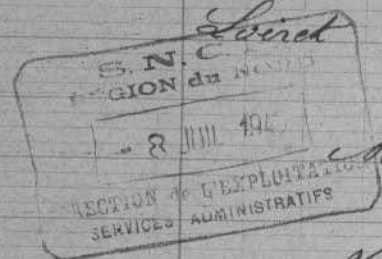 Loiret
S. N. C.
REGION du NORD
- 8 JUIL 194
DIRECTION de L'EXPLOITATION
SERVICES ADMINISTRATIFS